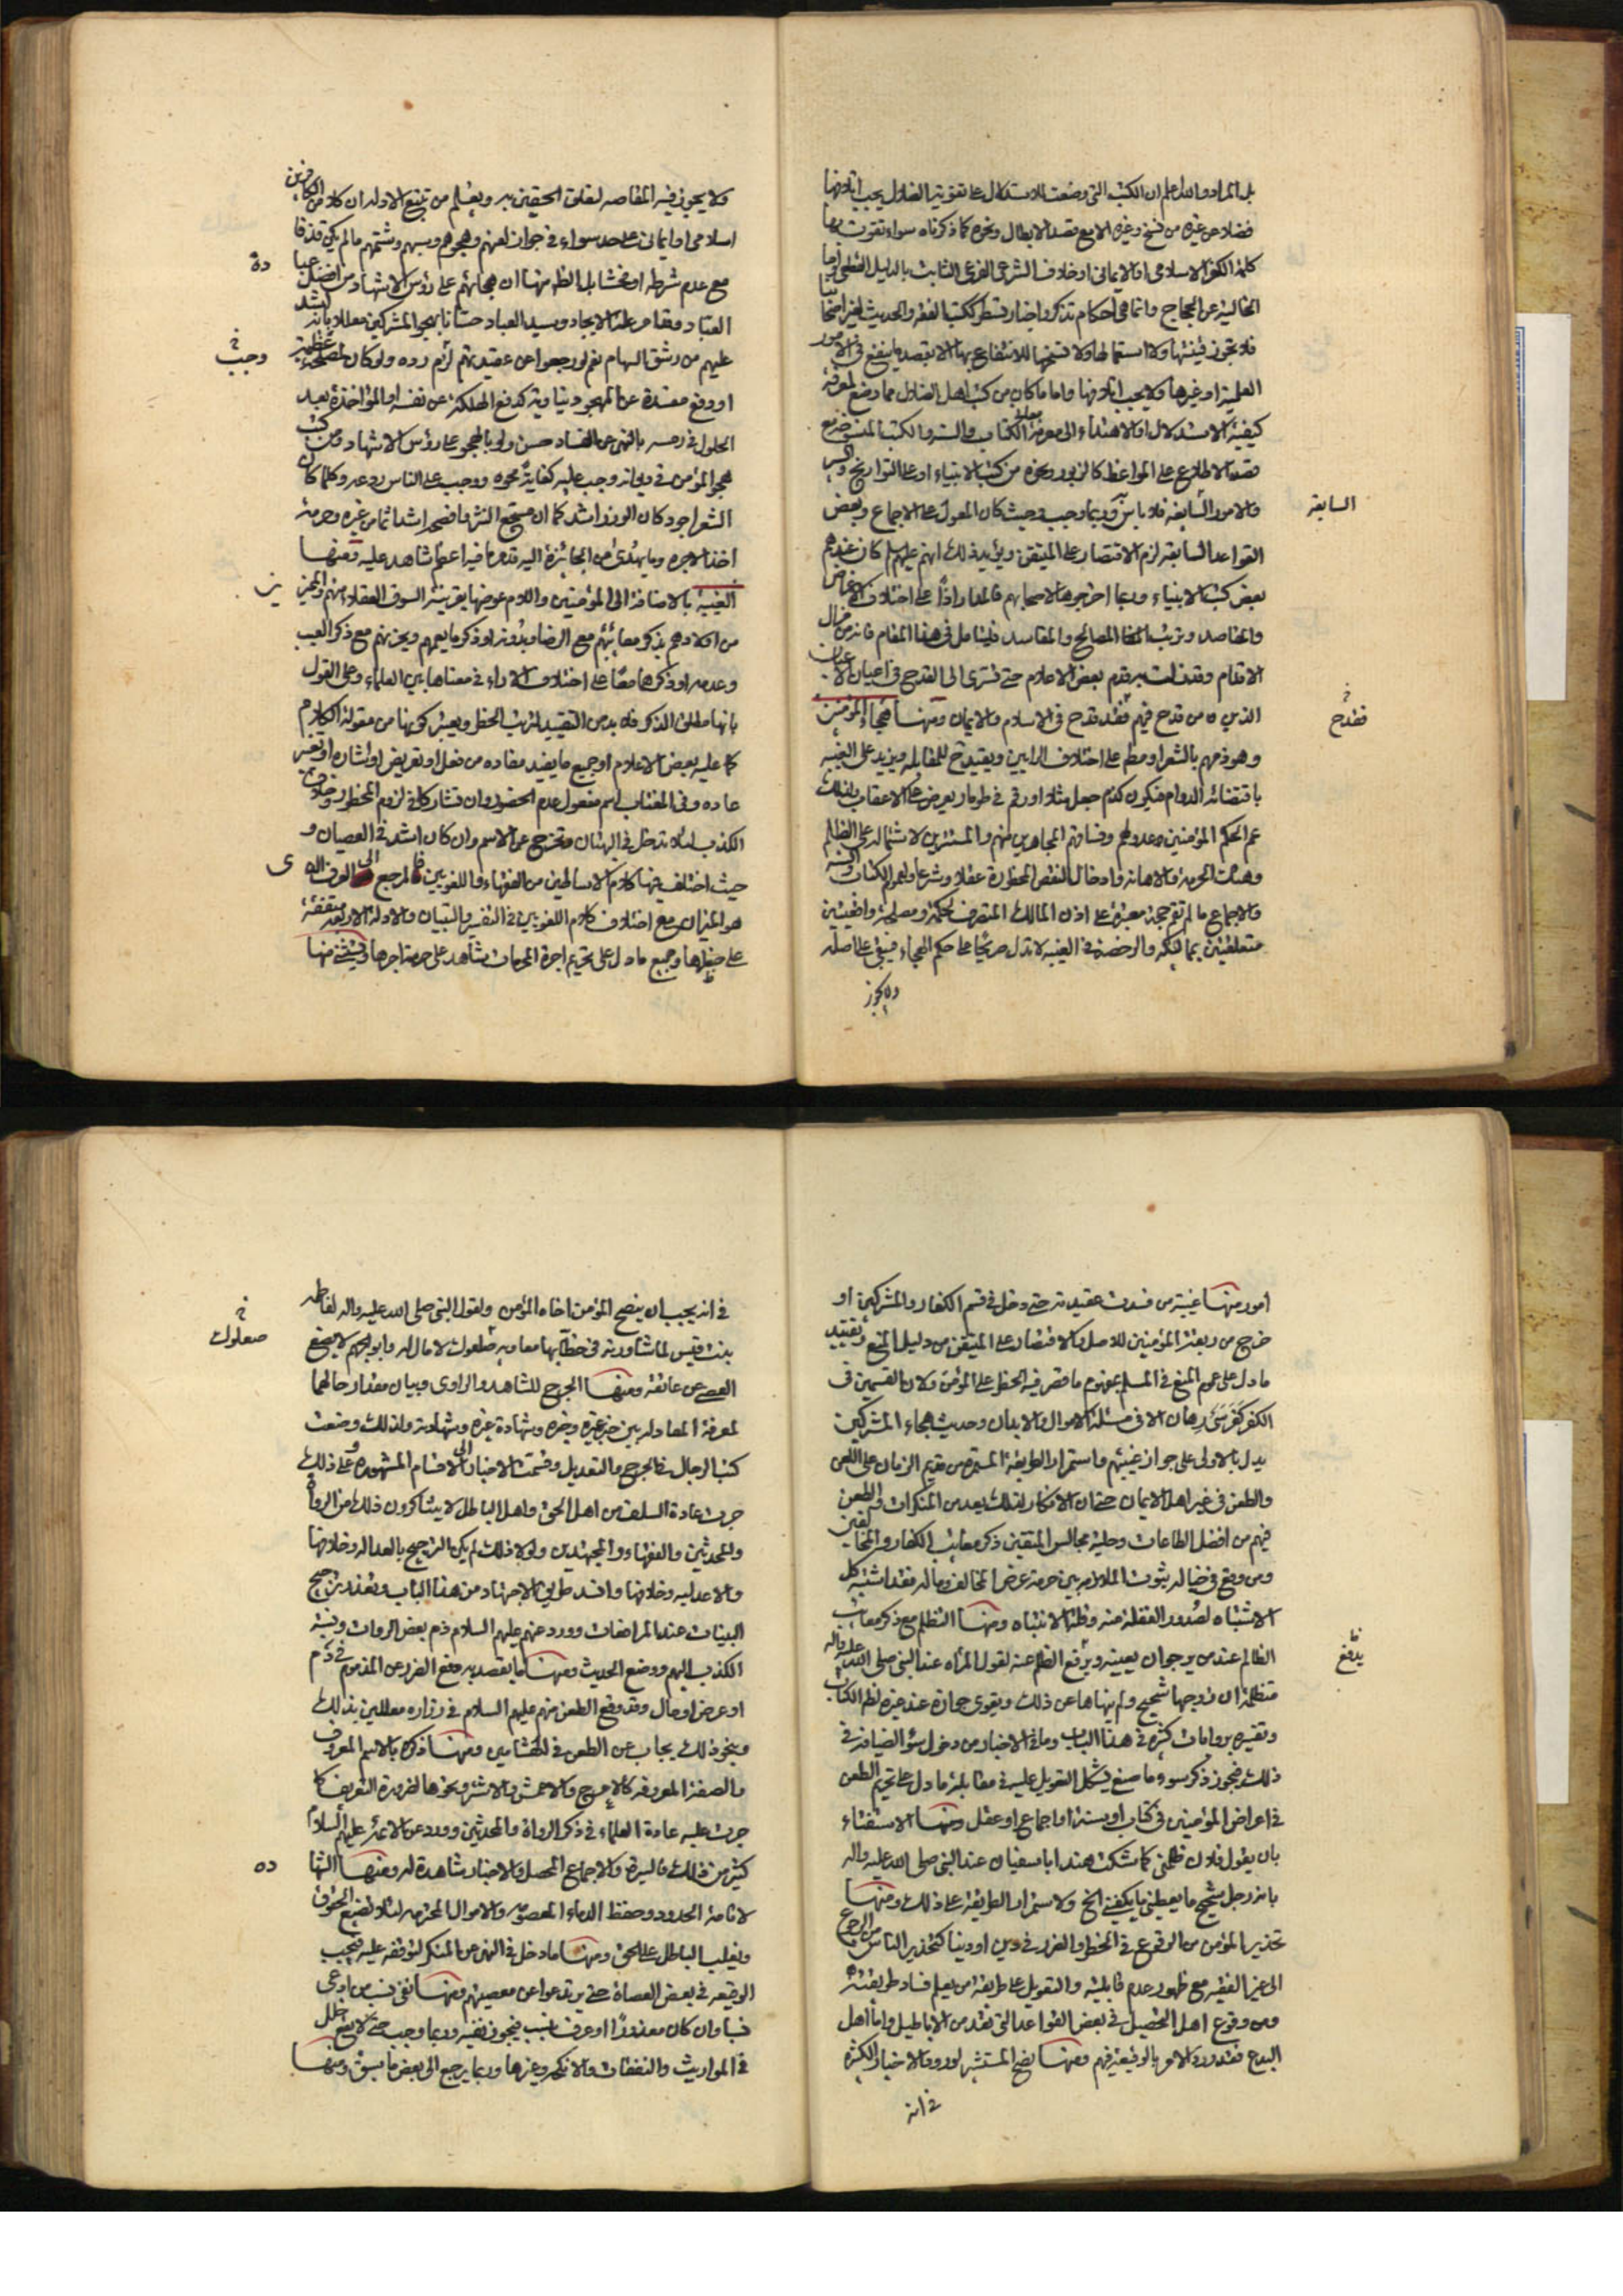 بل المراد والله اعلم ان الكتب التى وضعت للاستدلال على تقوية الضلال يجب اتلافها
فضلا عن غيره من نسخ وغيره الا مع قصد الابطال ونحوه كما ذكرناه سواء تقوت بها
كلمة الكفر الاسلامى او الايمانى او خلاف الشرعى الفرعى الثابت بالدليل القطعى واما
الخالية عن الحجاج وانما هى احكام تذكر واخبار تسطر ككتب الفقه والحديث لغير اصحابنا
فلا تجوز قنيتها ولا استعمالها ولا نسخها للانتفاع بها الا بقصد ما ينفع فى الامور
العلمية او غيرها ولا يجب اتلافها واما ما كان من كتب اهل الضلال مما وضع لمعرفة
كيفية الاستدلال او الاهتداء الى معرفة معانى الكتاب والسنة والكتب المنسوخة مع
قصد الاطلاع على المواعظ كالزبور ونحوه من كتب الانبياء او على التواريخ والسير
والامور السابقة فلا باس به وربما وجب وحيث كان المعول على الاجماع وبعض
القواعد السابقة لزم الاقتصار على المتيقن ويؤيد ذلك انهم عليهم السلام كان عندهم
بعض كتب الانبياء وربما اخرجوها لاصحابهم فالمدار اذاً على اختلاف الاغراض
والمقاصد وترتب المصالح والمفاسد فليتامل فى هذا المقام فانه من مزال
الاقدام وقد زلت به قدم بعض الاعلام حتى تسرى الى القدح فى اعيان الاعيان
الذين من قدح فيهم فقد قدح فى الاسلام والايمان ومنها هجاء المؤمنين
وهو ذمهم بالشعر او مطلقا على اختلاف الرايين ويقيد مع المقابلة ويزيد على الغيبة
باقتضائه الدوام فيكون كذم جعل مثلا او رقم فى طومار يعرض على الاعقاب ولذلك
عم الحكم المؤمنين وعدولهم وفساقهم المجاهرين منهم والمستترين لاشتماله على الظلم
وهتك الحرمة والاهانة وادخال النقص المحظورة عقلا وشرعا ولعموم الكتاب والسنة
والاجماع ما لم تقم حجة معتبرة على اذن المالك المتصرف لحكمة ومصلحة واضحتين
متعلقتين بمالكه والرخصة فى الغيبة لا تدل صريحا على حكم الهجاء فيبقى على اصله
ولا يجوز
السابقة
فقدح
ولا يجوز فيه المقاصة لتعلق الحقين به ويعلم من تتبع الادلة ان كلا من الكافرين
اسلامى او ايمانى على حد سواء فى جواز لعنهم وهجوهم وسبهم وشتمهم ما لم يكن قذفا
مع عدم شرطه او فحشا بل الظاهر منها ان هجائهم على رؤس الاشهاد من افضل
العباد وقد امر علة الايجاد وسيد العباد حسانا بهجو المشركين معللا بانه اشد
عليهم من رشق السهام نعم لو رجعوا عن عقيدتهم لزم رده ولو كان لمصلحة عظيمة
او دفع مفسدة عن المهجو دنياوية كدفع الهلكة عن نفسه او المؤاخذة بعد
الحلول فى رمسه بالنهى عن الفساد حسن ولو بالهجو على رؤس الاشهاد ومن كتب
هجو المؤمن فى ديوانه وجب عليه كفاية محوه ووجب على الناس ردعه وكلما كان
الشعر اجود كان الوزر اشد كما ان مسجع النثر وافصحه اشد اثما من غيره وحرمة
اخذ الاجرة وما يهدى من الجائزة اليه تقدم ما فيه اعظم شاهد عليه ومنها
الغيبة بالاضافة الى المؤمنين واللام عوضها بقرينة السوق العقلاء منهم والمميزين
من اولادهم بذكر معائبهم مع الرضا وبدونه او ذكر ما يعمهم ويحزنهم مع ذكر العيب
وعدمه او ذكرهما معا على اختلاف الاراء فى معناها بين العلماء وعلى القول
بانها مطلق الذكر فلا بد من التقييد لترتب الحظر ويعتبر كونها من مقولة الكلام
كما عليه بعض الاعلام او جميع ما يفيد مفاده من فعل او تعريض او اشارة او تعبير
عادة وفى المغتاب اسم مفعول عدم الحضور وان تشاركا فى لزوم المحظور وخلاف
الكذب لئلا تدخل فى البهتان وتخرج عن الاسم وان كان اشد فى العصيان و
حيث اختلف فيها كلام الاساطين من الفقهاء واللغويين فالمرجع الى العرف اذ
هو الميزان مع اختلاف كلام اللغويين فى التفسير والتبيان والادلة الاربعة متفقة
على حظرها وجميع ما دل على تحريم اجرة المحرمات شاهد على حرمة اجرها ويستثنى منها
دة
وجب
ين
ى
امور منها غيبة من فسدت عقيدته حتى دخل فى قسم الكفار والمشركين او
خرج من ربقة المؤمنين للاصل والاقتصار على المتيقن من دليل المنع وتقييد
ما دل على عموم المنع فى المسلم بمفهوم ما قصر فيه الحظر على المؤمن ولان القسمين فى
الكفر كفرسى رهان الا فى مسئلة الاموال والابدان وحديث هجاء المشركين
يدل بالاولى على جواز غيبتهم واستمرار الطريقة المستمرة من قديم الزمان على اللعن
والطعن فى غير اهل الايمان حتى ان الانكار لذلك يعد من المنكرات والطعن
فيهم من افضل الطاعات وحلية مجالس المتقين ذكر معائب الكفار والمخالفين
ومن وقع فى خياله ثبوت الملازمة بين حرمة عرض المخالف وماله فقد اشتبه كل
الاشتباه لصدور الغفلة منه وقلة الانتباه ومنها التظلم مع ذكر معائب
الظالم عند من يرجو ان يعينه ويرفع الظلم عنه لقول المرأه عند النبى صلى الله عليه واله
متظلمة ان زوجها شحيح ولم ينهاها عن ذلك ويقوى جوازه عند غيره لظاهر الكتاب
وتفسيره بروايات كثيرة فى هذا الباب وما فى الاخبار من دخول سوء الضيافة فى
ذلك فيجوز ذكر سوء ما صنع يشكل التعويل عليه فى مقابلة ما دل على تحريم الطعن
فى اعراض المؤمنين فى كتاب او سنة او اجماع او عقل ومنها الاستفتاء
بان يقول فلان ظلمنى كما شكت هند ابا سفيان عند النبى صلى الله عليه واله
بانه رجل شحيح ما يعطينى ما يكفينى الخ ولاستمرار الطريقة على ذلك ومنها
تحذير المؤمن من الوقوع فى الخطر والضرر فى دين او دنيا كتحذير الناس من الرجوع
الى غير الفقيه مع ظهور عدم قابليته والتعويل على طريقة من يعلم فساد طريقته
ومن وقوع اهل التحصيل فى بعض القواعد التى تعد من الاباطيل واما اهل
البدع فقد ورد الامر بالوقيعة فيهم ومنها نصح المستشير لورود الاخبار الكثيرة
فى انه
يدفع
فى انه يجب ان ينصح المؤمن اخاه المؤمن ولقول النبى صلى الله عليه واله لفاطمة
بنت قيس لما شاورته فى خطابها معاويه صعلوك لا مال له وابو الجهم لا يضع
العصى عن عاتقه ومنها الجرح للشاهد والراوى وبيان مقدار حالهما
لمعرفة المعادلة بين خبر غيره وخبره وشهادة غيره وشهادته ولذلك وضعت
كتب الرجال فى الجرح والتعديل وقسمت الاخبار الى الاقسام المشهورة وعلى ذلك
جرت عادة السلف من اهل الحق واهل الباطل لا يتناكرون ذلك من الرواة
والمحدثين والفقهاء والمجتهدين ولولا ذلك لم يكن الترجيح بالعدالة وخلافها
والاعدلية وخلافها وانسد طريق الاجتهاد من هذا الباب وتعذر ترجيح
البينات عند المرافعات وورد عنهم عليهم السلام ذم بعض الروات ونسبة
الكذب اليهم ووضع الحديث ومنها ما يقصد به دفع الضرر عن المذموم فى دم
او عرض او مال وقد وقع الطعن منهم عليهم السلام فى زراره معللين بذلك
وبنحو ذلك يجاب عن الطعن فى الهشامين ومنها ذكره بالاسم المعروف
والصفة المعروفة كالاعرج والاعمش والاشتر ونحوها لضرورة التعريف كما
جرت عليه عادة العلماء فى ذكر الرواة والمحدثين وورد عن الائمة عليهم السلام
كثير من ذلك فالسيرة والاجماع المحصل والاخبار شاهدة له ومنها الشها
لاقامة الحدود وحفظ الدماء المعصومة والاموال المحترمة لئلا تضيع الحقوق
ويغلب الباطل على الحق ومنها ما دخل فى النهى عن المنكر لتوقفه عليه فيجب
الوقيعه فى بعض العصاة حتى يرتدعوا عن معصيتهم ومنها نفى نسب من ادعى
نسبا وان كان معذورًا او عرف بنسب فيجوز نفيه وربما وجب حتى لا يقع خلل
فى المواريث والنفقات والانكحة وغيرها وربما يرجع الى بعض ما سبق ومنها
صعلوك
ده